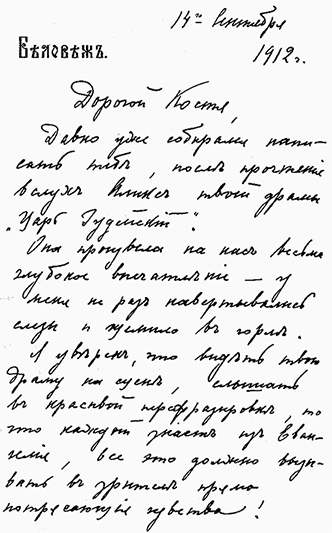 14го Сентября
БѢЛОВѢЖЪ.
1912 г.
Дорогой Костя,
Давно уже собирался напи-
сать тебѣ, послѣ прочтенія
вслухъ Аликсъ твоей драмы
„Царь Іудейскій“.
Она произвела на насъ весьма
глубокое впечатлѣніе — у
меня не разъ навертывались
слезы и щемило въ горлѣ.
Я увѣренъ, что видѣть твою
драму на сценѣ, слышать
въ красивой перефразировкѣ, то
что каждый знаетъ изъ Еван-
гелія, все это должно вызы-
вать въ зрителѣ прямо
потрясающія чувства!